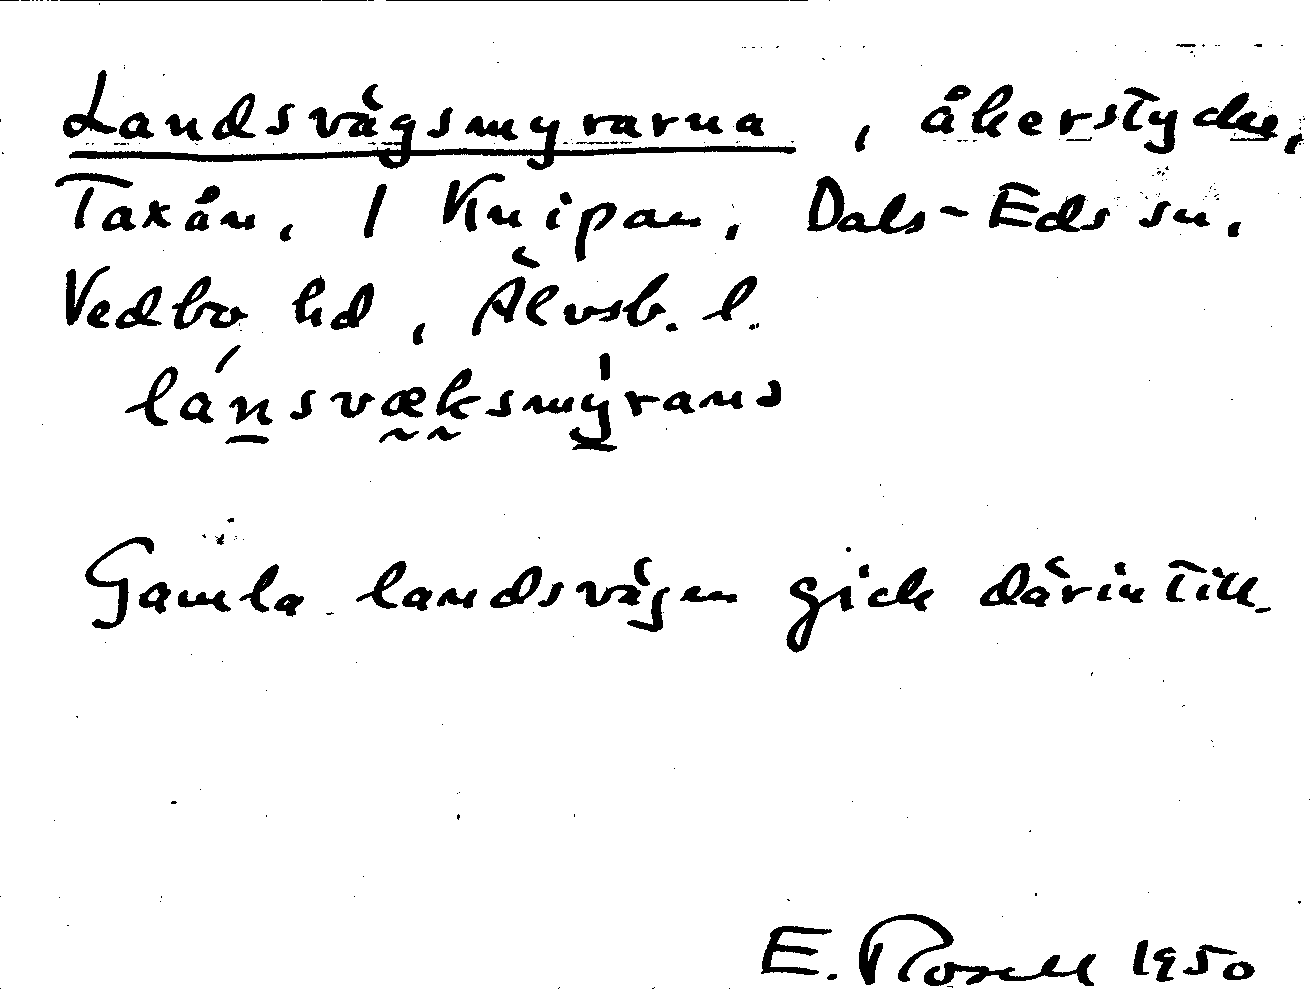 Landsvägsmyrarna, åkerstycke,
Taxån, 1 Knipan, Dals-Eds sn,
Vedbo hd, Älvsb. l.
lánsvæksmy̍rana
Gamla landsvägen gick därintill.
E. Rosell 1950